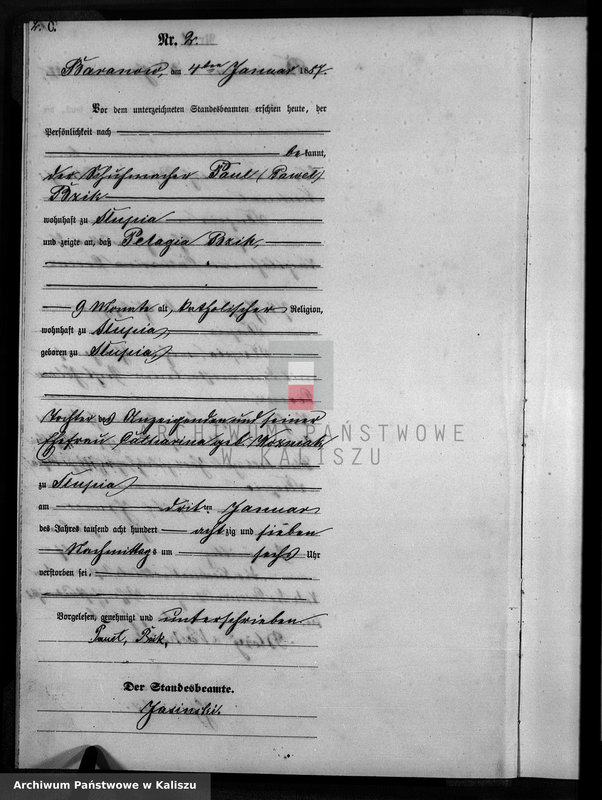 C.
Nr. 2.
Baranow, am 4ten Januar 1887.
Vor dem unterzeichneten Standesbeamten erschien heute, der
Persönlichkeit nach
bekannt,
der Schuhmacher Paul (Pawel)
Bzik
wohnhaft zu Slupia
und zeigte an, daß Pelagia Bzik,
9 Monate alt, katholischer Religion,
wohnhaft zu Slupia,
geboren zu Slupia,
Tochter des Anzeigenden und seiner
Ehefrau Catharina geb. Wozniak
zu Slupia
am dritten Januar
des Jahres tausend acht hundert achtzig und sieben
Nachmittags um sechs Uhr
verstorben sei.
Vorgelesen, genehmigt und unterschrieben
Paul, Bzik,
Der Standesbeamte.
Jasinski.
ARCHIWUM PAŃSTWOWE
W KALISZU
Archiwum Państwowe w Kaliszu